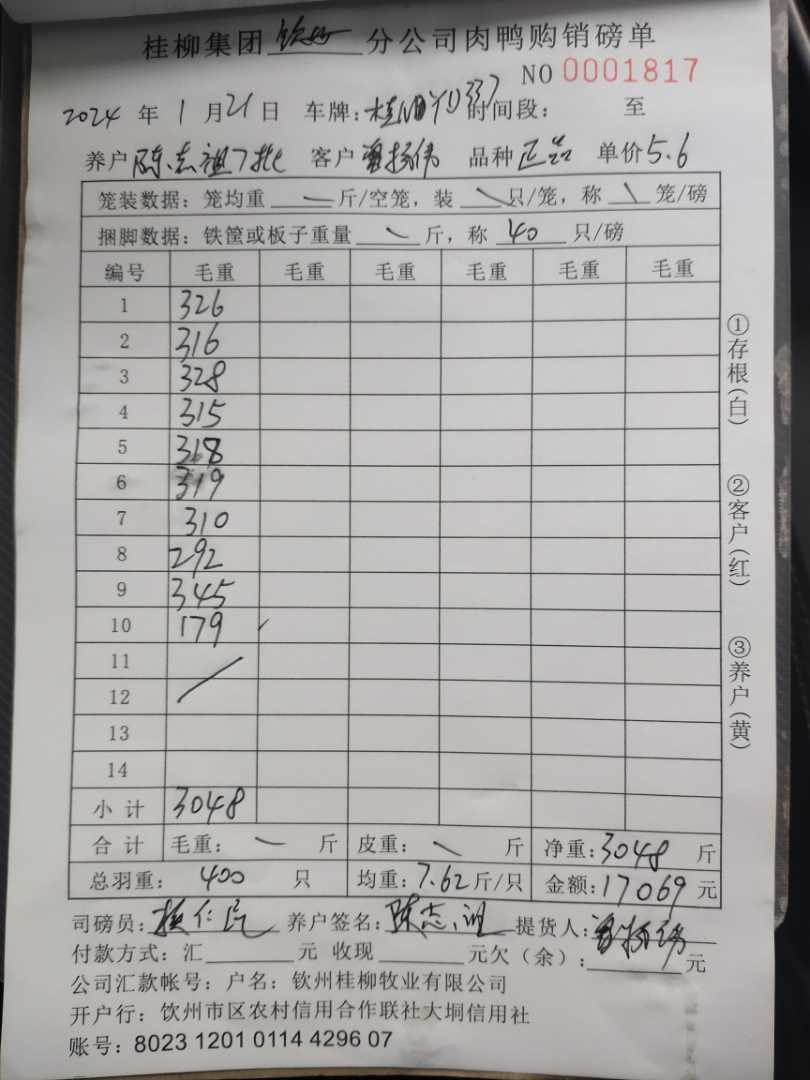 桂柳集团 钦州 分公司肉鸭购销磅单
NO 0001817
2024 年 1 月 21 日 车牌: 桂 337 时间段: 至
养户 陈志祖7批 客户 曾扬伟 品种 正品 单价 5.6
笼装数据: 笼均重 — 斤/空笼, 装 \ 只/笼, 称 \ 笼/磅
捆脚数据: 铁筐或板子重量 \ 斤, 称 40 只/磅
编号 毛重 毛重 毛重 毛重 毛重 毛重
1 326
2 316
3 328
4 315
5 318
6 319
7 310
8 292
9 345
10 179
11
12
13
14
小计 3048
合计 毛重: — 斤 皮重: \ 斤 净重: 3048 斤
总羽重: 400 只 均重: 7.62 斤/只 金额: 17069 元
司磅员: 仁 养户签名: 陈志祖 提货人: 曾扬伟
付款方式: 汇 元 收现 元欠(余): 元
公司汇款帐号: 户名: 钦州桂柳牧业有限公司
开户行: 钦州市区农村信用合作联社大垌信用社
账号: 8023 1201 0114 4296 07
①存根(白)
②客户(红)
③养户(黄)